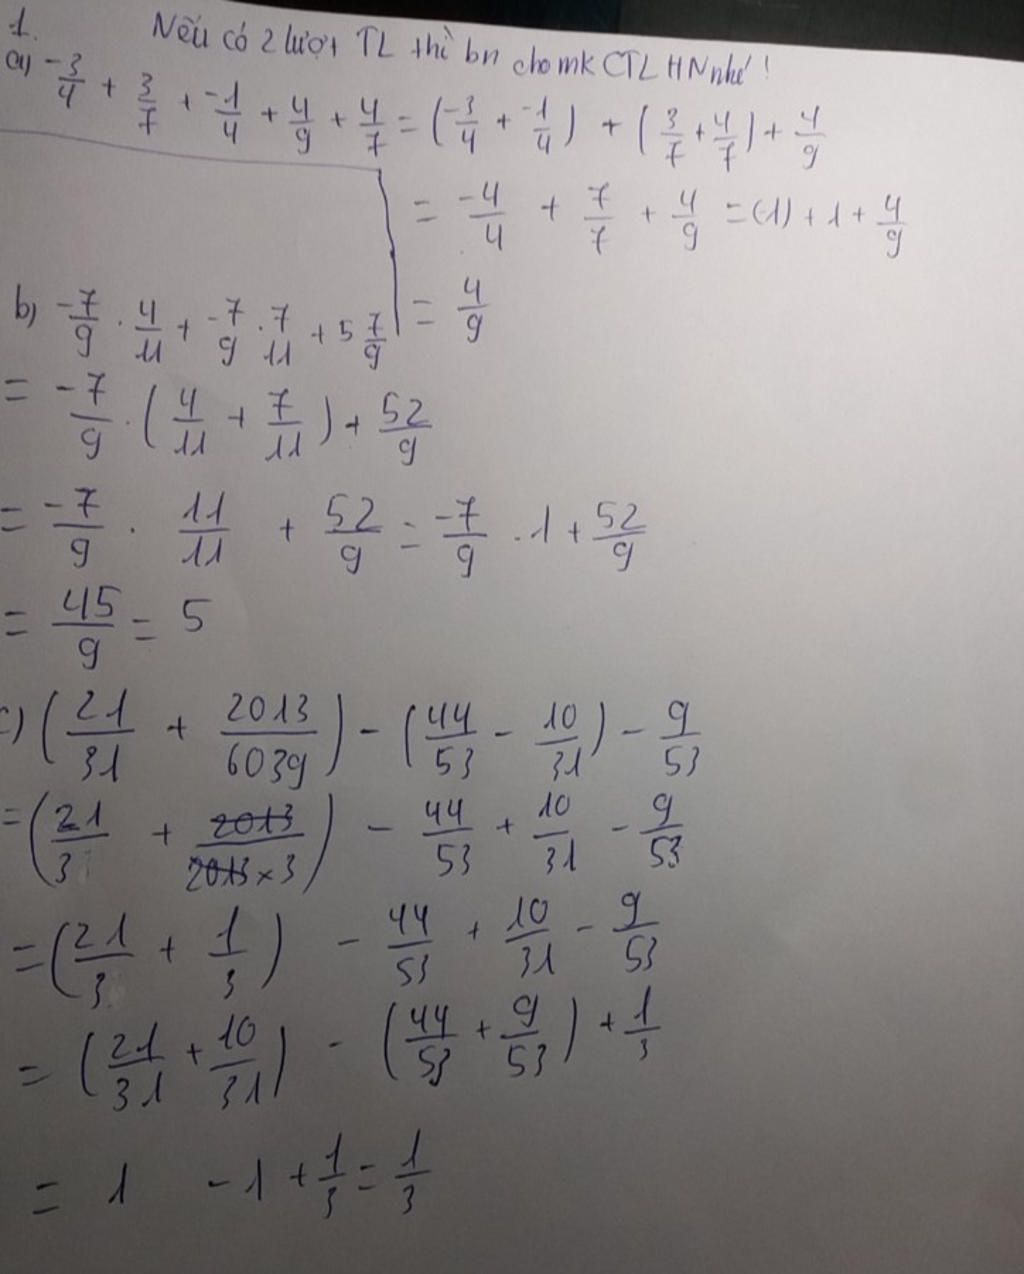 1. Nếu có 2 lượt TL thì bn cho mk CTLHN nhé!
a) -3/4 + 3/7 + -1/4 + 4/9 + 4/7 = (-3/4 + -1/4) + (3/7 + 4/7) + 4/9
= -4/4 + 7/7 + 4/9 = (-1) + 1 + 4/9
= 4/9
b) -7/9 . 4/11 + -7/9 . 7/11 + 5 7/9
= -7/9 . (4/11 + 7/11) + 52/9
= -7/9 . 11/11 + 52/9 = -7/9 . 1 + 52/9
= 45/9 = 5
c) (21/31 + 2013/6039) - (44/53 - 10/31) - 9/53
= (21/3 + 2013/2013×3) - 44/53 + 10/31 - 9/53
= (21/3 + 1/3) - 44/53 + 10/31 - 9/53
= (21/31 + 10/31) - (44/53 + 9/53) + 1/3
= 1 - 1 + 1/3 = 1/3